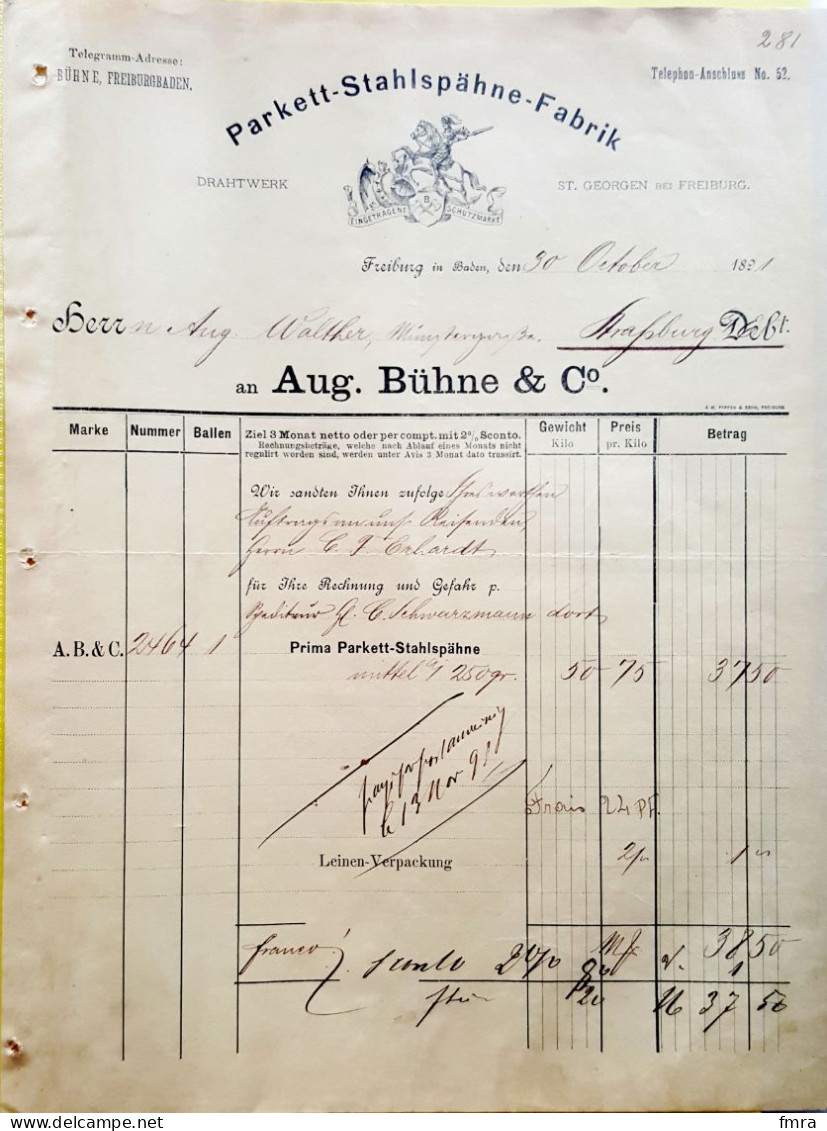 281
Telegramm-Adresse:
BÜHNE, FREIBURGBADEN.
Telephon-Anschluss No. 52.
Parkett-Stahlspähne-Fabrik
DRAHTWERK
ST. GEORGEN BEI FREIBURG.
EINGETRAGENE SCHUTZMARKE
B
Freiburg in Baden, den 30 October 1891
Herrn Aug. Walther, Münstergasse. Straßburg Debt.
an Aug. Bühne & Co.
Marke Nummer Ballen
Ziel 3 Monat netto oder per compt. mit 2% Sconto.
Rechnungsbeträge, welche nach Ablauf eines Monats nicht
regulirt worden sind, werden unter Avis 3 Monat dato trassirt.
Gewicht Kilo
Preis pr. Kilo
Betrag
Wir sandten Ihnen zufolge Ihres werthen
Auftrags an uns. Reisenden,
Herrn C. F. Erhardt,
für Ihre Rechnung und Gefahr p.
Spediteur C. Schwarzmann dort
A.B.&C. 2464 1 Prima Parkett-Stahlspähne
mittel 250gr. 50 75 37 50
le 13 Nov 91
Frais 24 Pf.
Leinen-Verpackung 1
franco! Sconto 2% 38 50
1
37 50
fmra